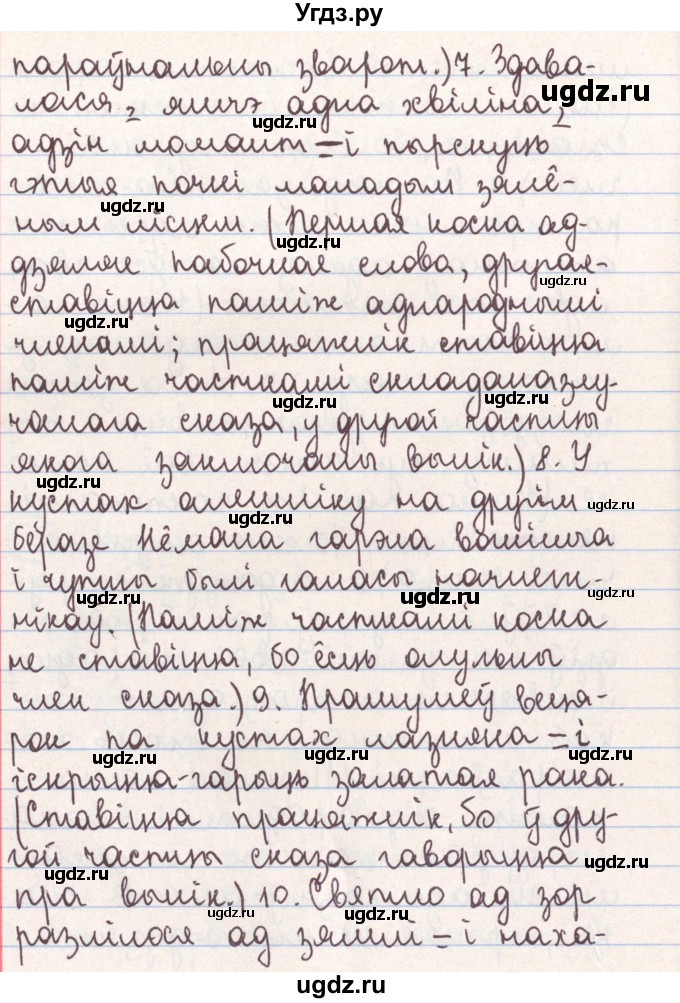 Угдз.ру
параўнальны зварот.) 7. Здава-
лася, яшчэ адна хвіліна,
адзін момант – і пырснуць
гэтыя почкі маладым зялё-
ным лісцем. (Першая коска ад-
дзяляе пабочнае слова, другая-
ставіцца паміж аднароднымі
членамі; працяжнік ставіцца
паміж часткамі складаназлу-
чанага сказа, у другой частцы
якога заключаны вынік.) 8. У
кустах алешніку на другім
беразе Нёмана гарэла вогнішча
і чутны былі галасы начлеж-
нікаў. (Паміж часткамі коска
не ставіцца, бо ёсць агульны
член сказа.) 9. Прашумеў веця-
рок па кустах лазняка – і
іскрыцца-гарыць залатая рака.
(Ставіцца працяжнік, бо ў дру-
гой частцы сказа гаворыцца
пра вынік.) 10. Святло ад зор
разлілося ад зямлі – і наха-
ugdz.ru